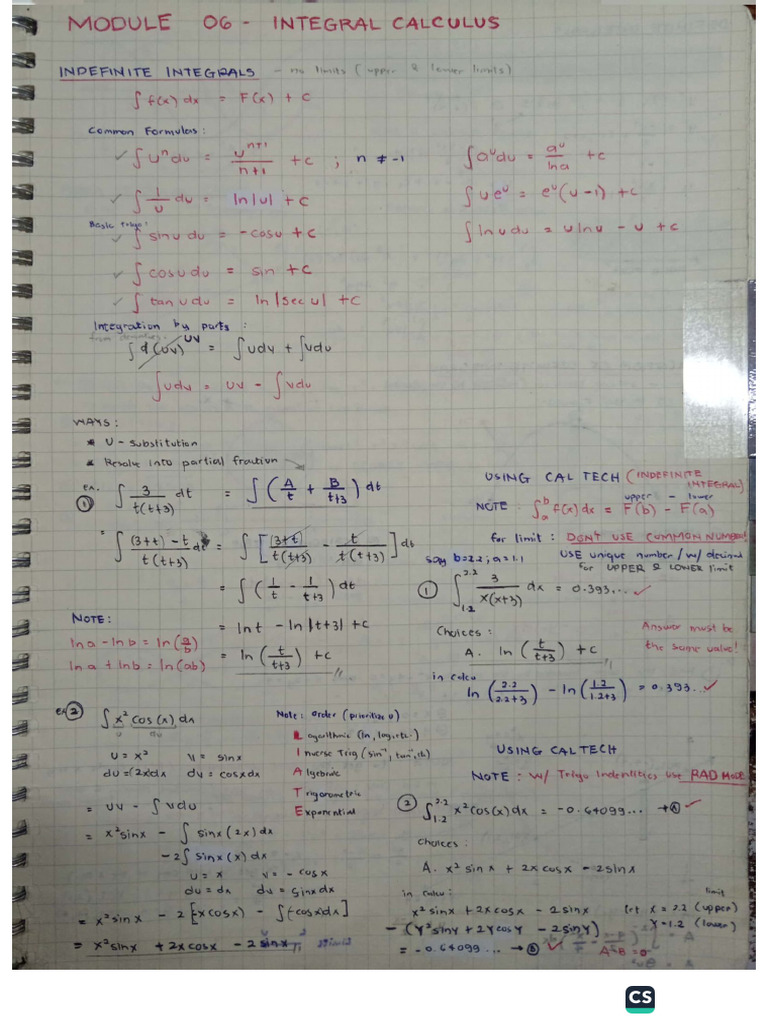 MODULE 06 - INTEGRAL CALCULUS
INDEFINITE INTEGRALS - no limits (upper & lower limits)
∫ f(x) dx = F(x) + C
Common Formulas:
✓ ∫ uⁿ du = uⁿ⁺¹/n+1 + C ; n ≠ -1
✓ ∫ 1/u du = ln|u| + C
Basic Trigo:
✓ ∫ sinu du = -cosu + C
✓ ∫ cosu du = sin + C
✓ ∫ tan u du = ln|sec u| + C
∫ aᵘ du = aᵘ/ln a + C
∫ u eᵘ = eᵘ(u-1) + C
∫ ln u du = u ln u - u + C
Integration by parts :
from
∫ d(uv) uv = ∫ udv + ∫ vdu
∫ udv = uv - ∫ vdu
WAYS:
* U - substitution
* Resolve into partial fraction
ex.
① ∫ 3/t(t+3) dt = ∫ (A/t + B/t+3) dt
= ∫ (3+t)-t/t(t+3) dt = ∫ [(3+t)/t(t+3) - t/t(t+3)] dt
= ∫ (1/t - 1/t+3) dt
= ln t - ln|t+3| + C
= ln (t/t+3) + C
NOTE:
ln a - ln b = ln(a/b)
ln a + ln b = ln(ab)
USING CALTECH (INDEFINITE INTEGRAL)
NOTE : ∫ₐᵇ f(x) dx = F(b) - F(a)
upper - lower
for limit : DON'T USE COMMON NUMBER!
say b=2.2 ; a=1.1 USE unique number /w/ decimal
for UPPER & LOWER limit
① ∫ 2.2 1.2 3/x(x+3) dx = 0.393... ✓
Choices :
A. ln (t/t+3) + C
Answer must be
the same value!
in calcu
ln (2.2/2.2+3) - ln (1.2/1.2+3) = 0.393... ✓
ex ② ∫ x² cos(x) dx
u dv
u = x² v = sinx
du = (2x)dx dv = cosxdx
= uv - ∫ vdu
= x²sinx - ∫ sinx(2x)dx
-2∫ sinx(x)dx
u = x v = -cosx
du = dx dv = sinxdx
= x²sinx - 2[-xcosx) - ∫(-cosx)dx]
= x²sinx + 2xcosx - 2sinx
Note: Order (prioritize u)
Logarithmic (ln, log, etc.)
Inverse Trig (sin⁻¹, tan⁻¹, etc)
Algebraic
Trigonometric
Exponential
USING CALTECH
NOTE : w/ Trigo Indentities use RAD Mode
2 ∫ 2.2 1.2 x²cos(x)dx = -0.64099... → Ⓐ ✓
Choices :
A. x² sin x + 2x cosx - 2sinx
in calcu: limit
x²sinx + 2xcosx - 2sinx let x = 2.2 (upper)
- (Y²sinY + 2YcosY - 2sinY) Y = 1.2 (lower)
= -0.64099... → Ⓑ ✓ A-B = 0
CS